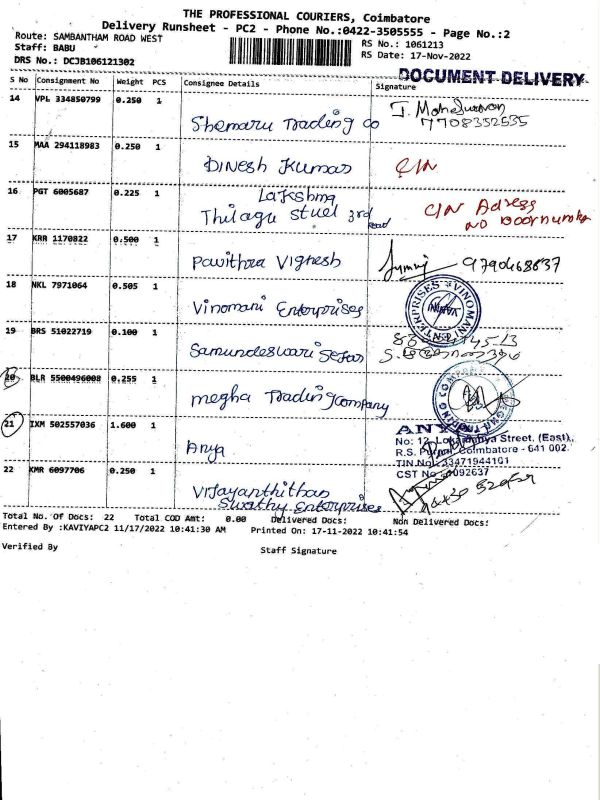 THE PROFESSIONAL COURIERS, Coimbatore
Delivery Runsheet - PC2 - Phone No.:0422-3505555 - Page No.:2
Route: SAMBANTHAM ROAD WEST
RS No.: 1061213
Staff: BABU
RS Date: 17-Nov-2022
DRS No.: DCJB106121302
DOCUMENT DELIVERY
S No Consignment No Weight PCS Consignee Details Signature
14 VPL 334850799 0.250 1 Shemaru Trading Co
7708352535
15 MAA 294118983 0.250 1 Dinesh Kumar C/N
16 PGT 6005687 0.225 1 Lakshmg
Thilagu Stuel 3rd Road C/N Adress
NO Doornumber
17 KRR 1170822 0.500 1 Pavithra Vignesh 9790468637
18 NKL 7971064 0.505 1 Vinomani Enterprises
ENTERPRISES VINOMANI
19 BRS 51022719 0.100 1 Samundeswari
20 BLR 5500496008 0.255 1 megha Trading Company
21 IXM 502557036 1.600 1 Anya
No: 12, Street, (East),
R.S. Coimbatore - 641 002.
TIN No: 33471944101
CST No 1092637
22 KMR 6097706 0.250 1 Vijayanthithas
Swathy Enterprises
Total No. Of Docs: 22 Total COD Amt: 0.00 Delivered Docs: Non Delivered Docs:
Entered By :KAVIYAPC2 11/17/2022 10:41:30 AM Printed On: 17-11-2022 10:41:54
Verified By Staff Signature